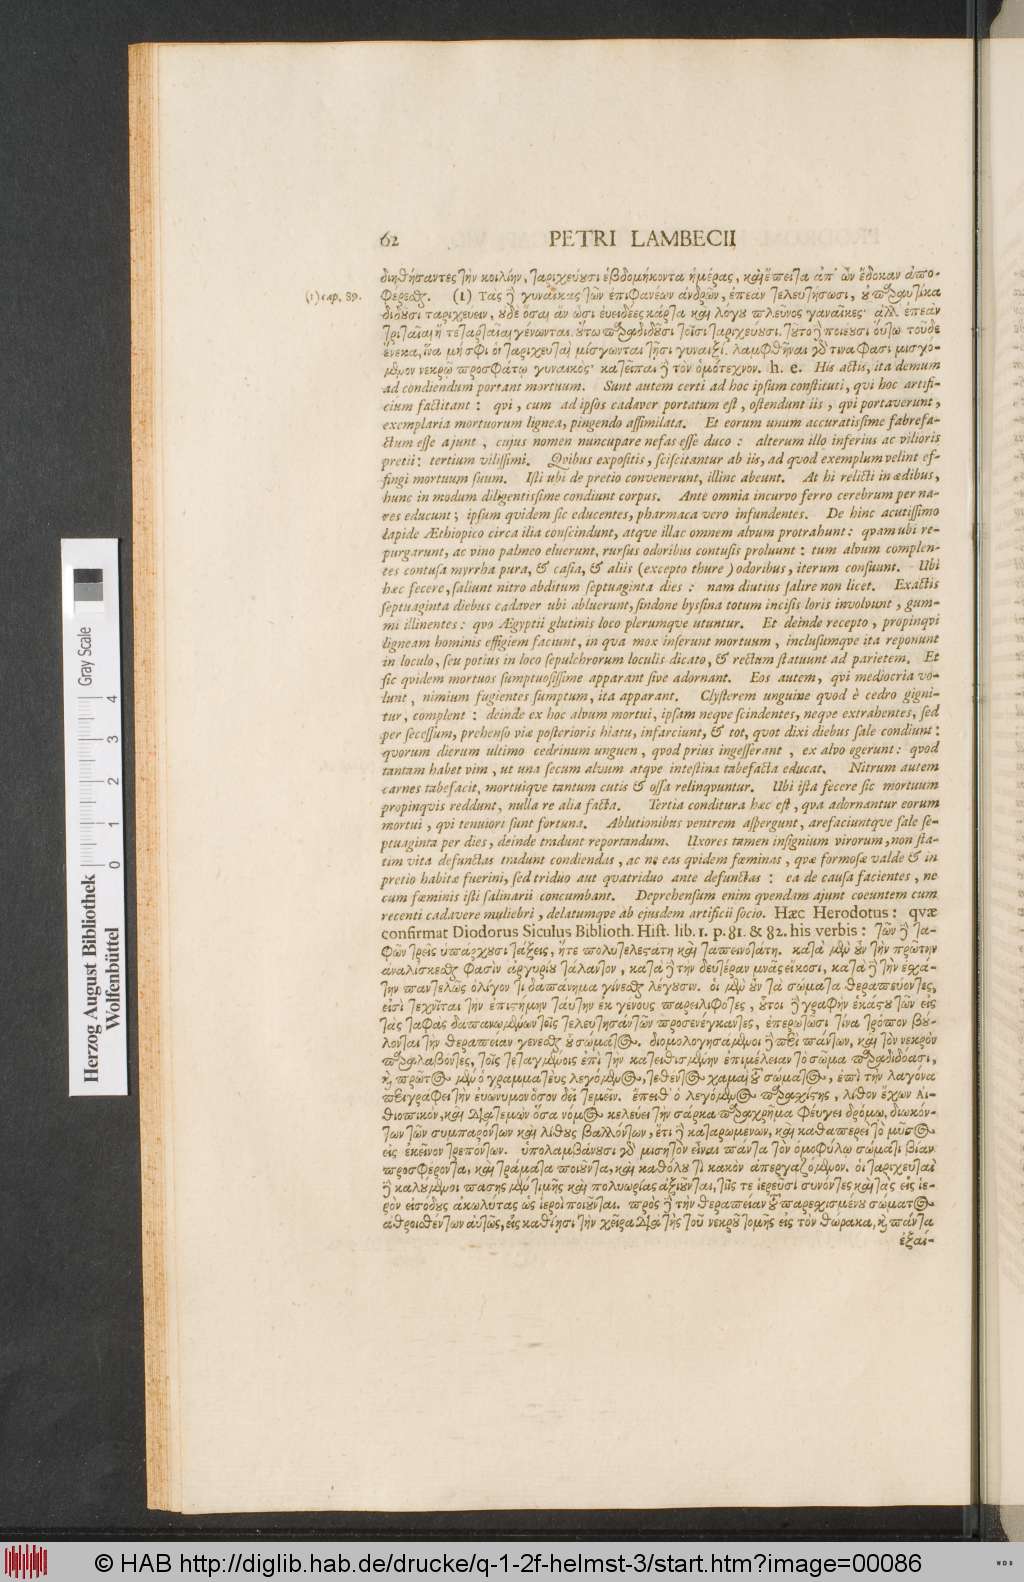 62 PETRI LAMBECII
διηθήσαντες τὴν κοιλίην, ταριχεύουσι ἑβδομήκοντα ἡμέρας, καὶ ἔπειτα ἀπ' ὦν ἔδοκαν ἀπο-
(1) cap. 89.
φέρεσθαι. (1) Τὰς ἢ γυναῖκας τῶν ἐπιφανέων ἀνδρῶν, ἐπεὰν τελευτήσωσι, οὐ παραυτίκα
διδοῦσι ταριχεύειν, οὐδὲ ὅσαι ἂν ὦσι εὐειδέες κάρτα καὶ λόγου πλεῦνος γυναῖκες· ἀλλ' ἐπεὰν
τριταῖαι ἢ τεταρταῖαι γένωνται. οὕτω παραδιδοῦσι τοῖσι ταριχεύουσι. τοῦτο ἢ ποιεῦσι οὕτω τοῦδε
ἕνεκα, ἵνα μή σφι οἱ ταριχευταὶ μίσγωνται τῇσι γυναιξί. λαμφθῆναι γάρ τινα φασι μισγό-
μενον νεκρῷ προσφάτῳ γυναικός· κατεῖπαι ἢ τὸν ὁμότεχνον. h. e. His actis, ita demum
ad condiendum portant mortuum. Sunt autem certi ad hoc ipsum constituti, qvi hoc artifi-
cium factitant : qvi, cum ad ipsos cadaver portatum est, ostendunt iis, qvi portaverunt,
exemplaria mortuorum lignea, pingendo assimilata. Et eorum unum accuratissime fabrefa-
ctum esse ajunt, cujus nomen nuncupare nefas esse duco : alterum illo inferius ac vilioris
pretii : tertium vilissimi. Qvibus expositis, sciscitantur ab iis, ad qvod exemplum velint ef-
fingi mortuum suum. Isti ubi de pretio convenerunt, illinc abeunt. At hi relicti in ædibus,
hunc in modum diligentissime condiunt corpus. Ante omnia incurvo ferro cerebrum per na-
res educunt ; ipsum quidem sic educentes, pharmaca vero infundentes. De hinc acutissimo
lapide Æthiopico circa ilia conscindunt, atqve illac omnem alvum protrahunt : qvam ubi re-
purgarunt, ac vino palmeo eluerunt, rursus odoribus contusis proluunt : tum alvum complen-
tes contusa myrrha pura, & casia, & aliis (excepto thure) odoribus, iterum consuunt. Ubi
hæc fecere, saliunt nitro abditum septuaginta dies : nam diutius salire non licet. Exactis
septuaginta diebus cadaver ubi abluerunt, sindone byssina totum incisis loris involvunt, gum-
mi illinentes : qvo Ægyptii glutinis loco plerumqve utuntur. Et deinde recepto, propinqvi
ligneam hominis effigiem faciunt, in qva mox inserunt mortuum, inclusumqve ita reponunt
in loculo, seu potius in loco sepulchrorum loculis dicato, & rectum statuunt ad parietem. Et
sic qvidem mortuos sumptuosissime apparant sive adornant. Eos autem, qvi mediocria vo-
lunt, nimium fugientes sumptum, ita apparant. Clysterem unguine qvod è cedro gigni-
tur, complent : deinde ex hoc alvum mortui, ipsam neqve scindentes, neqve extrahentes, sed
per secessum, prehenso viæ posterioris hiatu, infarciunt, & tot, qvot dixi diebus sale condiunt :
qvorum dierum ultimo cedrinum unguen, qvod prius ingesserant, ex alvo egerunt : qvod
tantam habet vim, ut una secum alvum atqve intestina tabefacta educat. Nitrum autem
carnes tabefacit, mortuiqve tantum cutis & ossa relinqvuntur. Ubi ista fecere sic mortuum
propinqvis reddunt, nulla re alia facta. Tertia conditura hæc est, qva adornantur eorum
mortui, qvi tenuiori sunt fortuna. Ablutionibus ventrem aspergunt, arefaciuntqve sale se-
ptuaginta per dies, deinde tradunt reportandum. Uxores tamen insignium virorum, non sta-
tim vita defunctas tradunt condiendas, ac ne eas qvidem fœminas, qvæ formosæ valde & in
pretio habitæ fuerint, sed triduo aut qvatriduo ante defunctas : ea de causa facientes, ne
cum fœminis isti salinarii concumbant. Deprehensum enim qvendam ajunt coëuntem cum
recenti cadavere muliebri, delatumqve ab ejusdem artificii socio. Hæc Herodotus : qvæ
confirmat Diodorus Siculus Biblioth. Hist. lib. 1. p. 81. & 82. his verbis : τῶν ἢ τα-
φῶν τρεῖς ὑπάρχουσι τάξεις, ἥτε πολυτελεστάτη καὶ ταπεινοτάτη. κατὰ μὲν οὖν τὴν πρώτην
ἀναλίσκεσθαι φασὶν ἀργυρίου τάλαντον, κατὰ ἢ τὴν δευτέραν μνᾶς εἴκοσι, κατὰ ἢ τὴν ἐσχά-
την παντελῶς ὀλίγον τι δαπάνημα γίνεσθαι λέγουσιν. οἱ μὲν οὖν τὰ σώματα θεραπεύοντες,
εἰσὶ τεχνῖται τὴν ἐπιστήμην ταύτην ἐκ γένους παρειλιφότες, οὗτοι ἢ γραφὴν ἑκάστου τῶν εἰς
τὰς ταφὰς δαπανωμένων τοῖς τελευτησάντων προσενέγκαντες, ἐπερωτῶσι τίνα τρόπον βού-
λονται τὴν θεραπείαν γενέσθαι τοῦ σώματος. διομολογησάμενοι ἢ περὶ πάντων, καὶ τὸν νεκρὸν
παραλαβόντες, τοῖς τεταγμένοις ἐπὶ τὴν κατειθισμένην ἐπιμέλειαν τὸ σῶμα παραδιδόασι,
καὶ πρῶτος μὲν ὁ γραμματεὺς λεγόμενος, τεθέντος χαμαὶ τοῦ σώματος, ἐπὶ τὴν λαγόνα
περιγράφει τὴν εὐώνυμον ὅσον δεῖ τεμεῖν. ἔπειθ' ὁ λεγόμενος παραχίστης, λίθον ἔχων Αἰ-
θιοπικὸν, καὶ διατεμὼν ὅσα νόμος κελεύει τὴν σάρκα παραχρῆμα φεύγει δρόμῳ, διωκόν-
των τῶν συμπαρόντων καὶ λίθους βαλλόντων, ἔτι ἢ καταρωμένων, καὶ καθαπερεὶ τὸ μῦσος
εἰς ἐκεῖνον τρεπόντων. ὑπολαμβάνουσι γὰρ μισητὸν εἶναι πάντα τὸν ὁμοφύλῳ σώματι βίαν
προσφέροντα, καὶ τράματα ποιοῦντα, καὶ καθόλου τι κακὸν ἀπεργαζόμενον. οἱ ταριχευταὶ
ἢ καλούμενοι πάσης μὲν τιμῆς καὶ πολυωρίας ἀξιοῦνται, τοῖς τε ἱερεῦσι συνόντες καὶ τὰς εἰς ἱε-
ρὸν εἰσόδους ἀκωλύτας ὡς ἱεροὶ ποιοῦνται. πρὸς ἢ τὴν θεραπείαν τοῦ παρεχισμένου σώματος
ἀθροισθέντων αὐτῶν, εἷς καθίησι τὴν χεῖρα διὰ τῆς τοῦ νεκροῦ τομῆς εἰς τὸν θώρακα, καὶ πάντα
ἐξαί-
Herzog August Bibliothek
Wolfenbüttel
Gray Scale
0 1 2 3 4
© HAB http://diglib.hab.de/drucke/q-1-2f-helmst-3/start.htm?image=00086